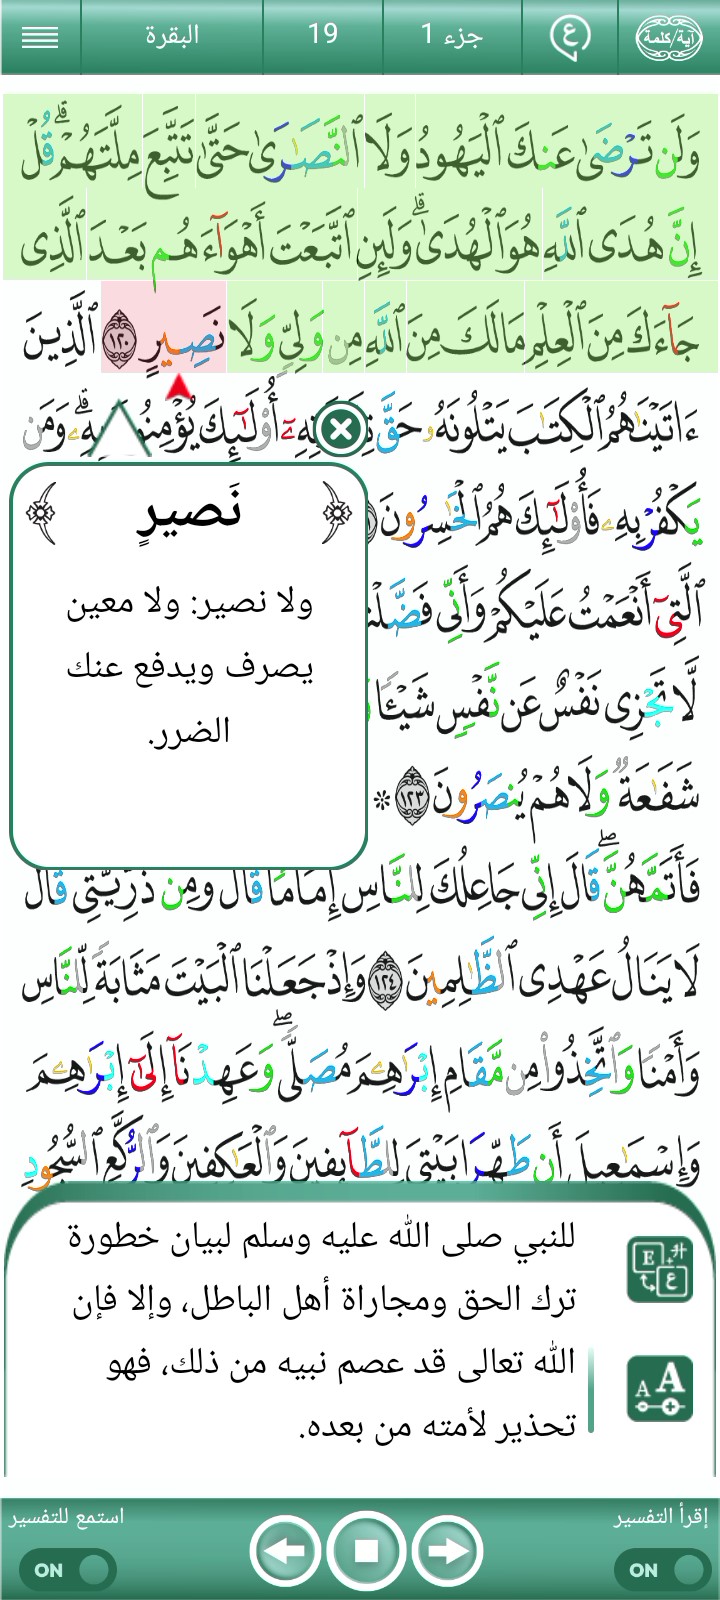 آية/كلمة
ع
جزء 1
19
البقرة
وَلَن تَرْضَىٰ عَنكَ ٱلْيَهُودُ وَلَا ٱلنَّصَٰرَىٰ حَتَّىٰ تَتَّبِعَ مِلَّتَهُمْ ۗ قُلْ
إِنَّ هُدَى ٱللَّهِ هُوَ ٱلْهُدَىٰ ۗ وَلَئِنِ ٱتَّبَعْتَ أَهْوَآءَهُم بَعْدَ ٱلَّذِى
جَآءَكَ مِنَ ٱلْعِلْمِ مَا لَكَ مِنَ ٱللَّهِ مِن وَلِىٍّ وَلَا نَصِيرٍ ١٢٠ ٱلَّذِينَ
ءَاتَيْنَٰهُمُ ٱلْكِتَٰبَ يَتْلُونَهُۥ حَقَّ أُو۟لَٰٓئِكَ يُؤْمِنُونَ بِهِۦ ۗ وَمَن
يَكْفُرْ بِهِۦ فَأُو۟لَٰٓئِكَ هُمُ ٱلْخَٰسِرُونَ
ٱلَّتِىٓ أَنْعَمْتُ عَلَيْكُمْ وَأَنِّى
لَّا تَجْزِى نَفْسٌ عَن نَّفْسٍ شَيْـًٔا
شَفَٰعَةٌ وَلَا هُمْ يُنصَرُونَ ١٢٣ *
فَأَتَمَّهُنَّ ۖ قَالَ إِنِّى جَاعِلُكَ لِلنَّاسِ إِمَامًا ۖ قَالَ وَمِن ذُرِّيَّتِى ۖ قَالَ
لَا يَنَالُ عَهْدِى ٱلظَّٰلِمِينَ ١٢٤ وَإِذْ جَعَلْنَا ٱلْبَيْتَ مَثَابَةً لِّلنَّاسِ
وَأَمْنًا وَٱتَّخِذُوا۟ مِن مَّقَامِ إِبْرَٰهِۦمَ مُصَلًّى ۖ وَعَهِدْنَآ إِلَىٰٓ إِبْرَٰهِۦمَ
وَإِسْمَٰعِيلَ أَن طَهِّرَا بَيْتِىَ لِلطَّآئِفِينَ وَٱلْعَٰكِفِينَ وَٱلرُّكَّعِ ٱلسُّجُودِ
نَصيرٍ
ولا نصير: ولا معين
يصرف ويدفع عنك
الضرر.
للنبي صلى الله عليه وسلم لبيان خطورة
ترك الحق ومجاراة أهل الباطل، وإلا فإن
الله تعالى قد عصم نبيه من ذلك، فهو
تحذير لأمته من بعده.
E ع
A A
إقرأ التفسير
ON
استمع للتفسير
ON